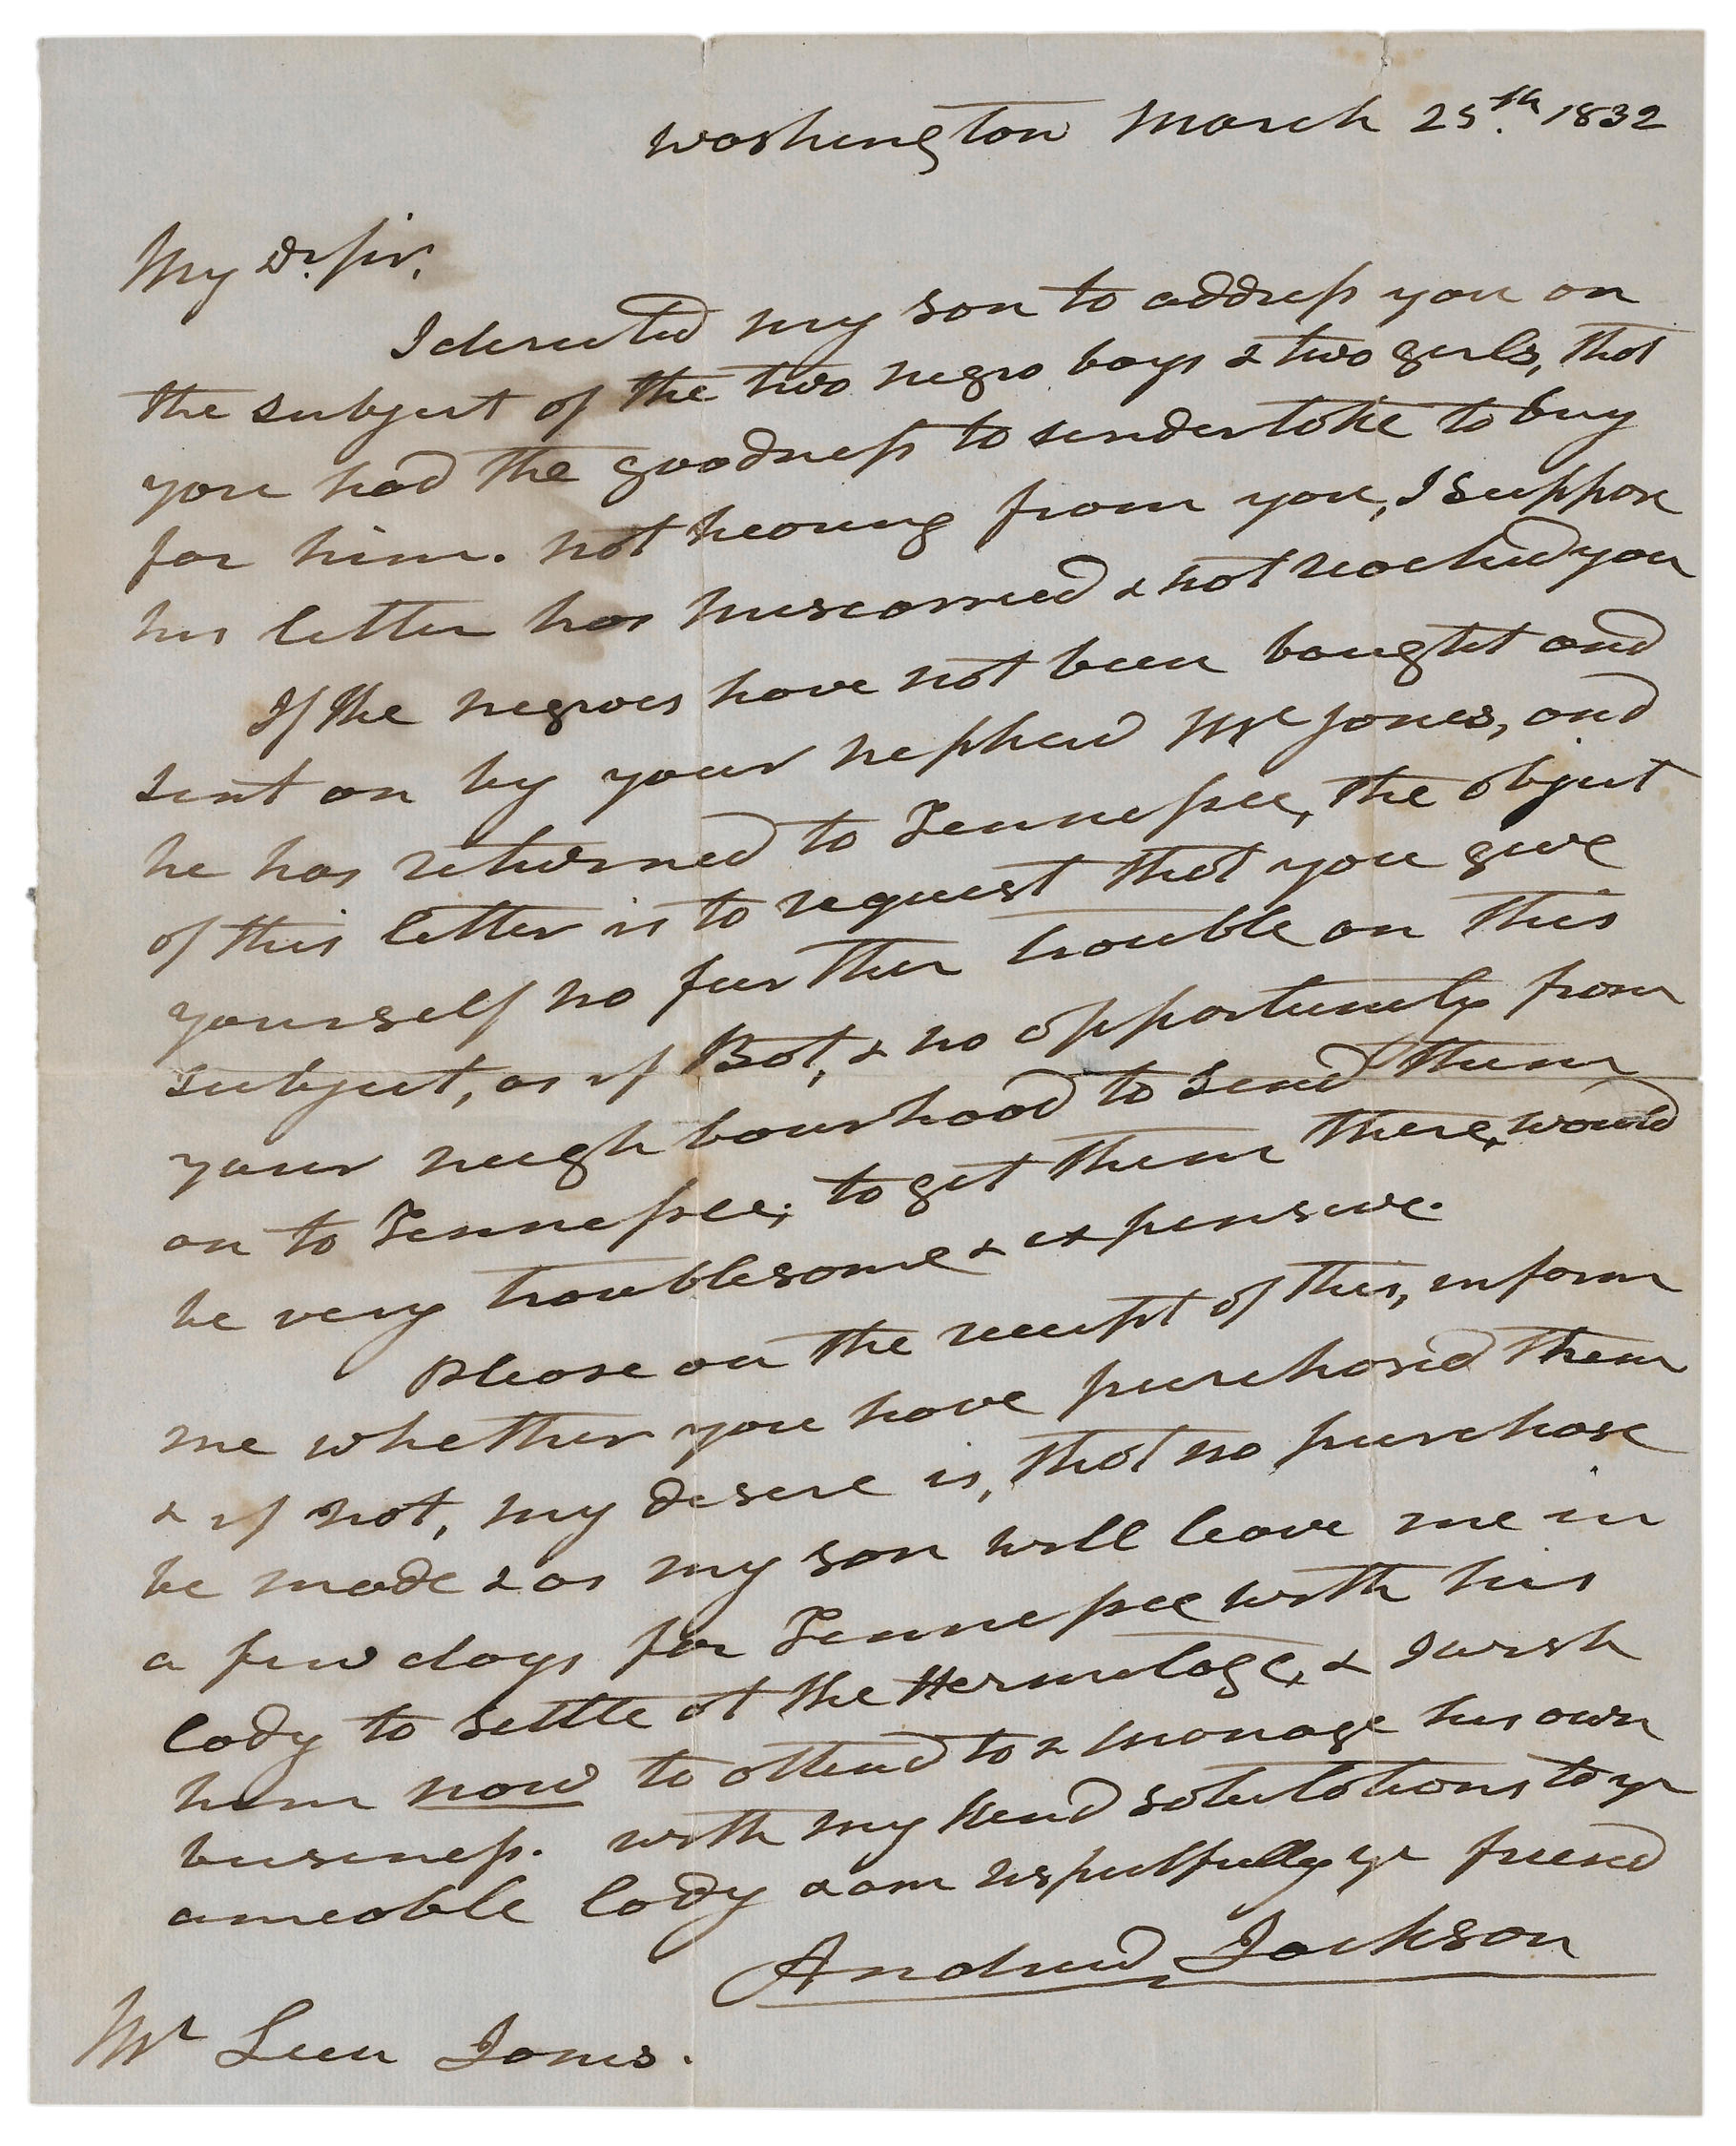 Washington March 25th. 1832
My Dr. Sir,
I directed my son to address you on
the subject of the two negro boys & two girls, that
you had the goodness to undertake to buy
for him. not hearing from you, I suppose
his letter has miscarried & not reached you
If the negroes have not been bought and
sent on by your nephew Mr Jones, and
he has returned to Tennessee, the object
of this letter is to request that you give
yourself no further trouble on this
subject, as if Bot, & no opportunity from
your neighbourhood to send them
on to Tennessee, to get them there, would
be very troublesome & expensive.
Please on the receipt of this, inform
me whether you have purchased them
& if not, my desire is, that no purchase
be made & as my son will leave me in
a few days for Tennessee with his
lady to settle at the Hermitage, & I wish
him now to attend to & manage his own
business. with my kind salutations to yr
ameable lady & am respectfully yr friend
Andrew Jackson
Mr Jones.